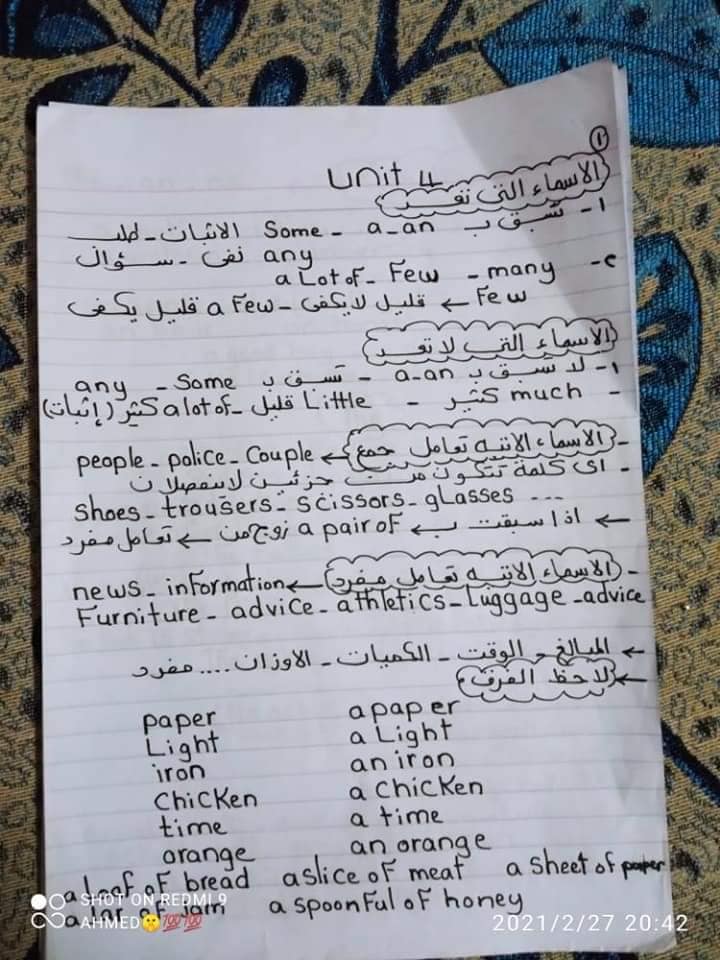 ①
Unit 4
الاسماء التى تعد
١- تسبق ب a-an - Some الاثبات - طلب
any نفى - سؤال
٢- many - Few - a Lot of
Few ← قليل لا يكفى - a Few قليل يكفى
الاسماء التى لا تعد
١- لا تسبق ب a-an - تسبق ب Some - any
- much كثير - Little قليل - a lot of كثير (إثبات)
- الاسماء الاتيه تعامل جمع ← people - police - Couple
- اى كلمة تتكون من جزئين لا ينفصلان
shoes - trousers - scissors - glasses ...
← اذا سبقت ب ← a pair of زوج من ← تعامل مفرد
- الاسماء الاتيه تعامل مفرد ← news - information
Furniture - advice - athletics - Luggage - advice
← المبالغ - الوقت - الكميات - الاوزان .... مفرد
← لاحظ الفرق
paper a paper
Light a Light
iron an iron
Chicken a chicken
time a time
orange an orange
a Loaf of bread a slice of meat a sheet of paper
a Jar of Jam a spoonful of honey
SHOT ON REDMI 9
AHMED🤫💯💯
2021/2/27 20:42